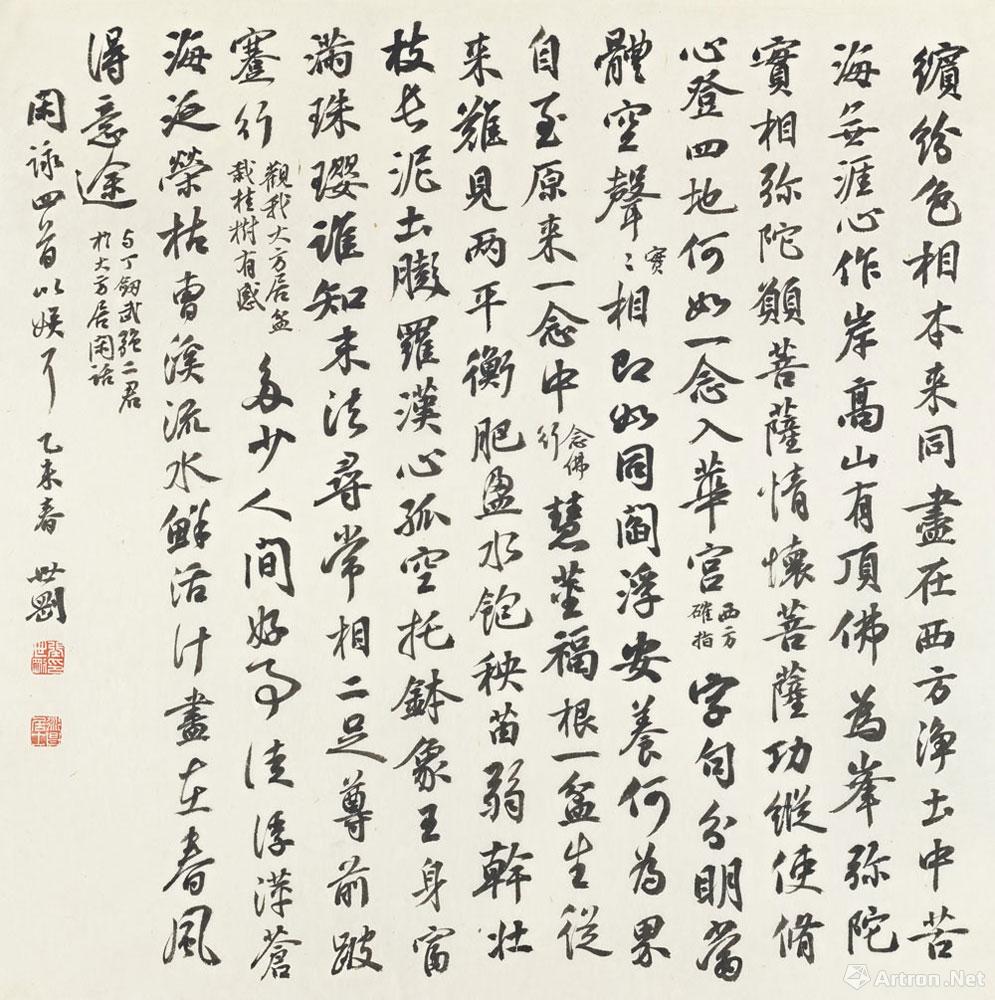 繽紛色相本来同盡在西方净土中苦
海無涯心作岸高山有頂佛為峯弥陀
實相弥陀願菩薩情懷菩薩功縱使脩
心登四地何如一念入華宮 西方確指 字句分明當
體空聲〻實相即如同閻浮安養何為界
自至原来一念中 念佛行 慧荃福根一盆生從
来難見两平衡肥盈水飽秧苗弱幹壮
枝长泥土膨羅漢心孤空托鉢象王身富
满珠璎誰知末法尋常相二足尊前跛
蹇行 觀我大方居盆栽桂樹有感 多少人間好事 浮萍蒼
海泛榮枯曹溪流水鮮活计盡在春风
得意途 与丁 二君於大方居闲話
闲詠四首以娱耳 乙未春 世剛
Artron.Net